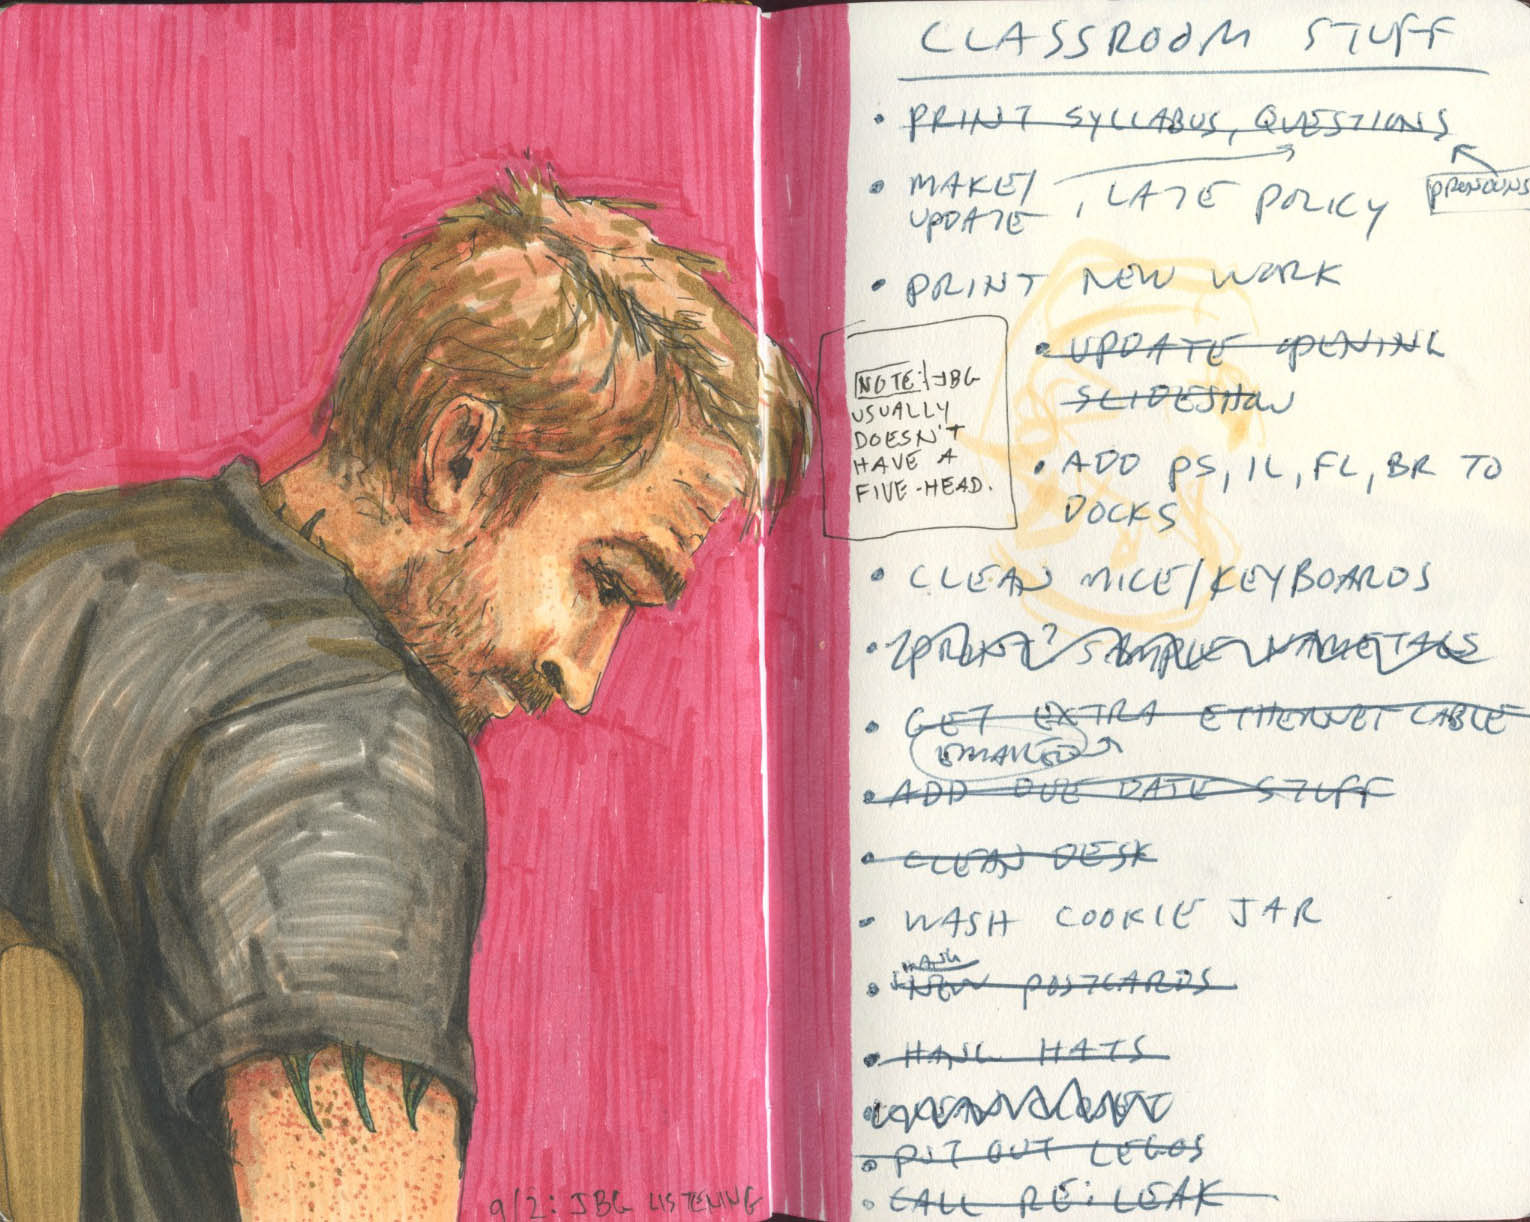 9/2: JBG LISTENING
CLASSROOM STUFF
• PRINT SYLLABUS, QUESTIONS
PRONOUNS
• MAKE/
UPDATE , LATE POLICY
• PRINT NEW WORK
• UPDATE OPENING
SLIDESHOW
NOTE: JBG
USUALLY
DOESN'T
HAVE A
FIVE-HEAD.
• ADD PS, IL, FL, BR TO
DOCKS
• CLEAN MICE/KEYBOARDS
• PRINT? SAMPLE NAMETAGS
• GET EXTRA ETHERNET CABLE
EMAILED
• ADD DUE DATE STUFF
• CLEAN DESK
• WASH COOKIE JAR
HANG
• NEW POSTCARDS
• HANG HATS
• CLEAN CLOSET
• PUT OUT LEGOS
• CALL RE: LEAK